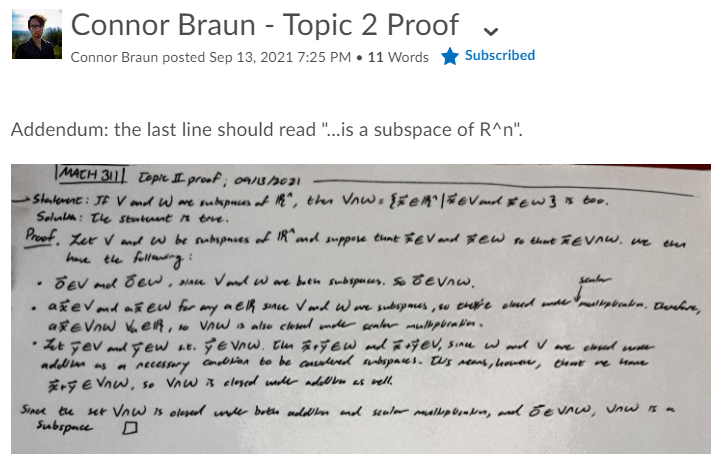 Connor Braun - Topic 2 Proof
Connor Braun posted Sep 13, 2021 7:25 PM • 11 Words Subscribed
Addendum: the last line should read "...is a subspace of R^n".
MACH 311 Topic II proof; 09/13/2021
→ Statement: If V and W are subspaces of ℝⁿ, then V∩W = {x⃗∈ℝⁿ | x⃗∈V and x⃗∈W} is too.
Solution: The statement is true.
Proof. Let V and W be subspaces of ℝⁿ and suppose that x⃗∈V and x⃗∈W so that x⃗∈V∩W. We then
have the following:
• 0⃗∈V and 0⃗∈W, since V and W are both subspaces. So 0⃗∈V∩W.
scalar
• ax⃗∈V and ax⃗∈W for any a∈ℝ since V and W are subspaces, so they're closed under multiplication. Therefore,
ax⃗∈V∩W ∀a∈ℝ, so V∩W is also closed under scalar multiplication.
• Let y⃗∈V and y⃗∈W s.t. y⃗∈V∩W. Then x⃗+y⃗∈W and x⃗+y⃗∈V, since W and V are closed under
addition as a necessary condition to be considered subspaces. This means, however, that we have
x⃗+y⃗∈V∩W, so V∩W is closed under addition as well.
Since the set V∩W is closed under both addition and scalar multiplication, and 0⃗∈V∩W, V∩W is a
subspace □